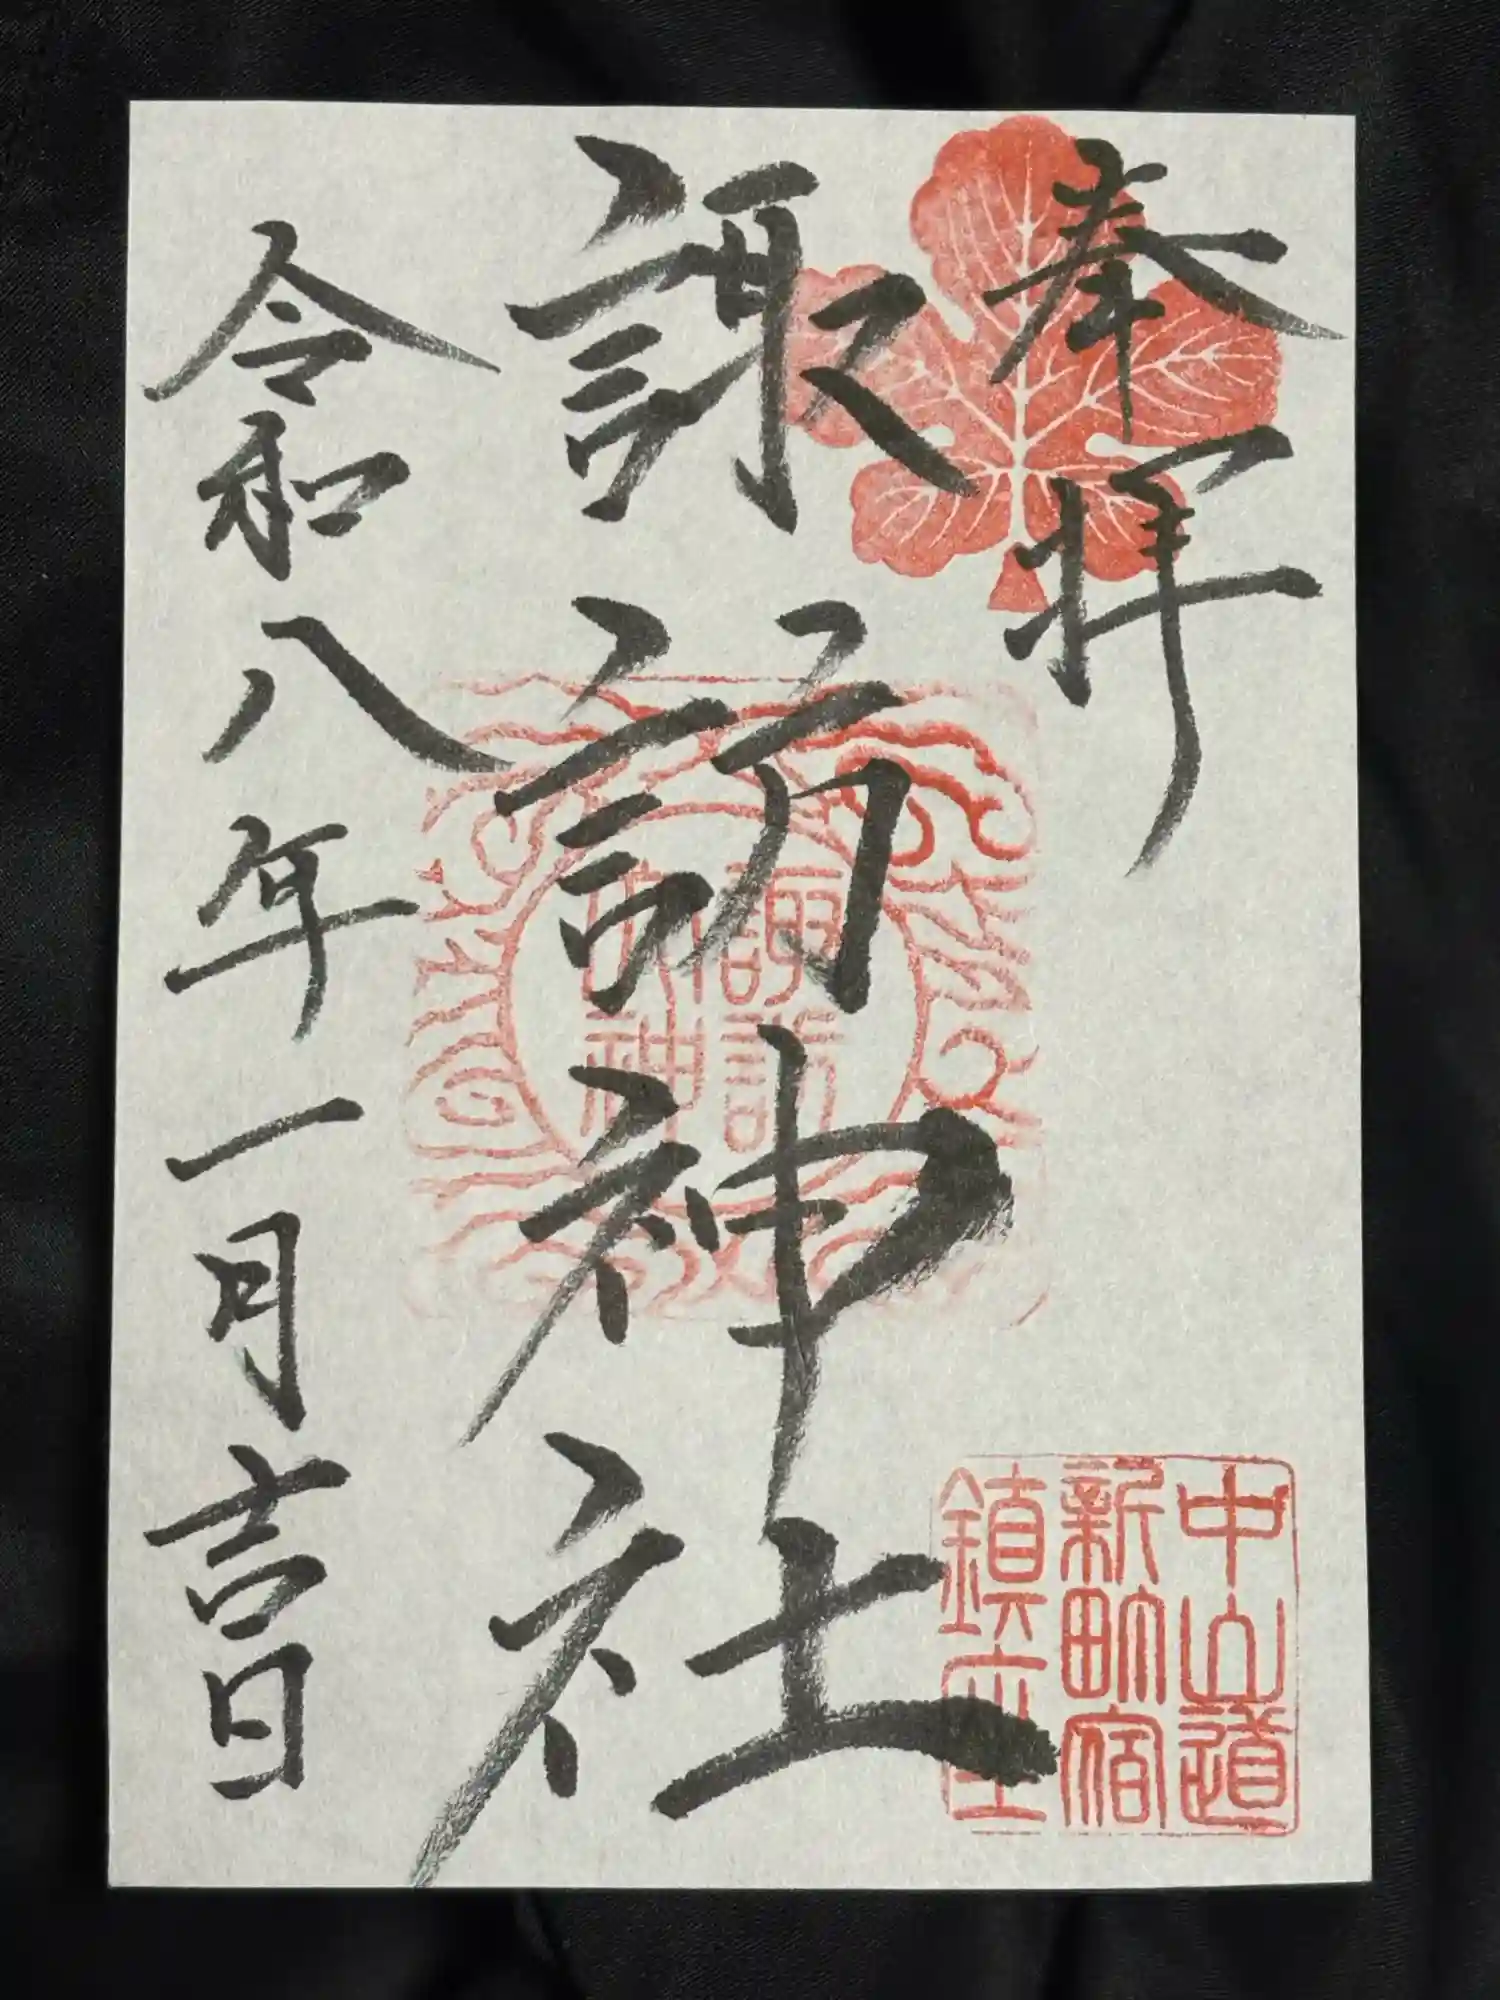 奉拝
諏訪神社
令和八年一月吉日
諏訪
大神
中山道
新町宿
鎮座